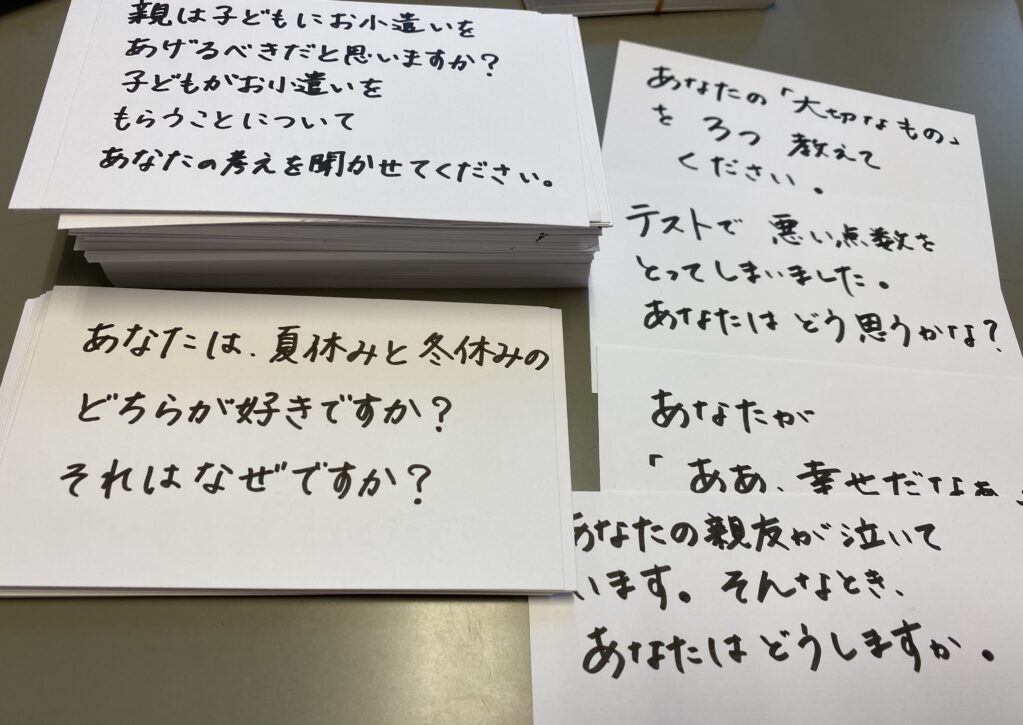 親は子どもにお小遣いを
あげるべきだと思いますか?
子どもがお小遣いを
もらうことについて
あなたの考えを聞かせてください。
あなたは、夏休みと冬休みの
どちらが好きですか?
それはなぜですか?
あなたの「大切なもの」
を 3つ 教えて
ください。
テストで 悪い点数を
とってしまいました。
あなたは どう思うかな?
あなたが
「ああ、幸せだなぁ」
あなたの親友が泣いて
います。そんなとき、
あなたはどうしますか。